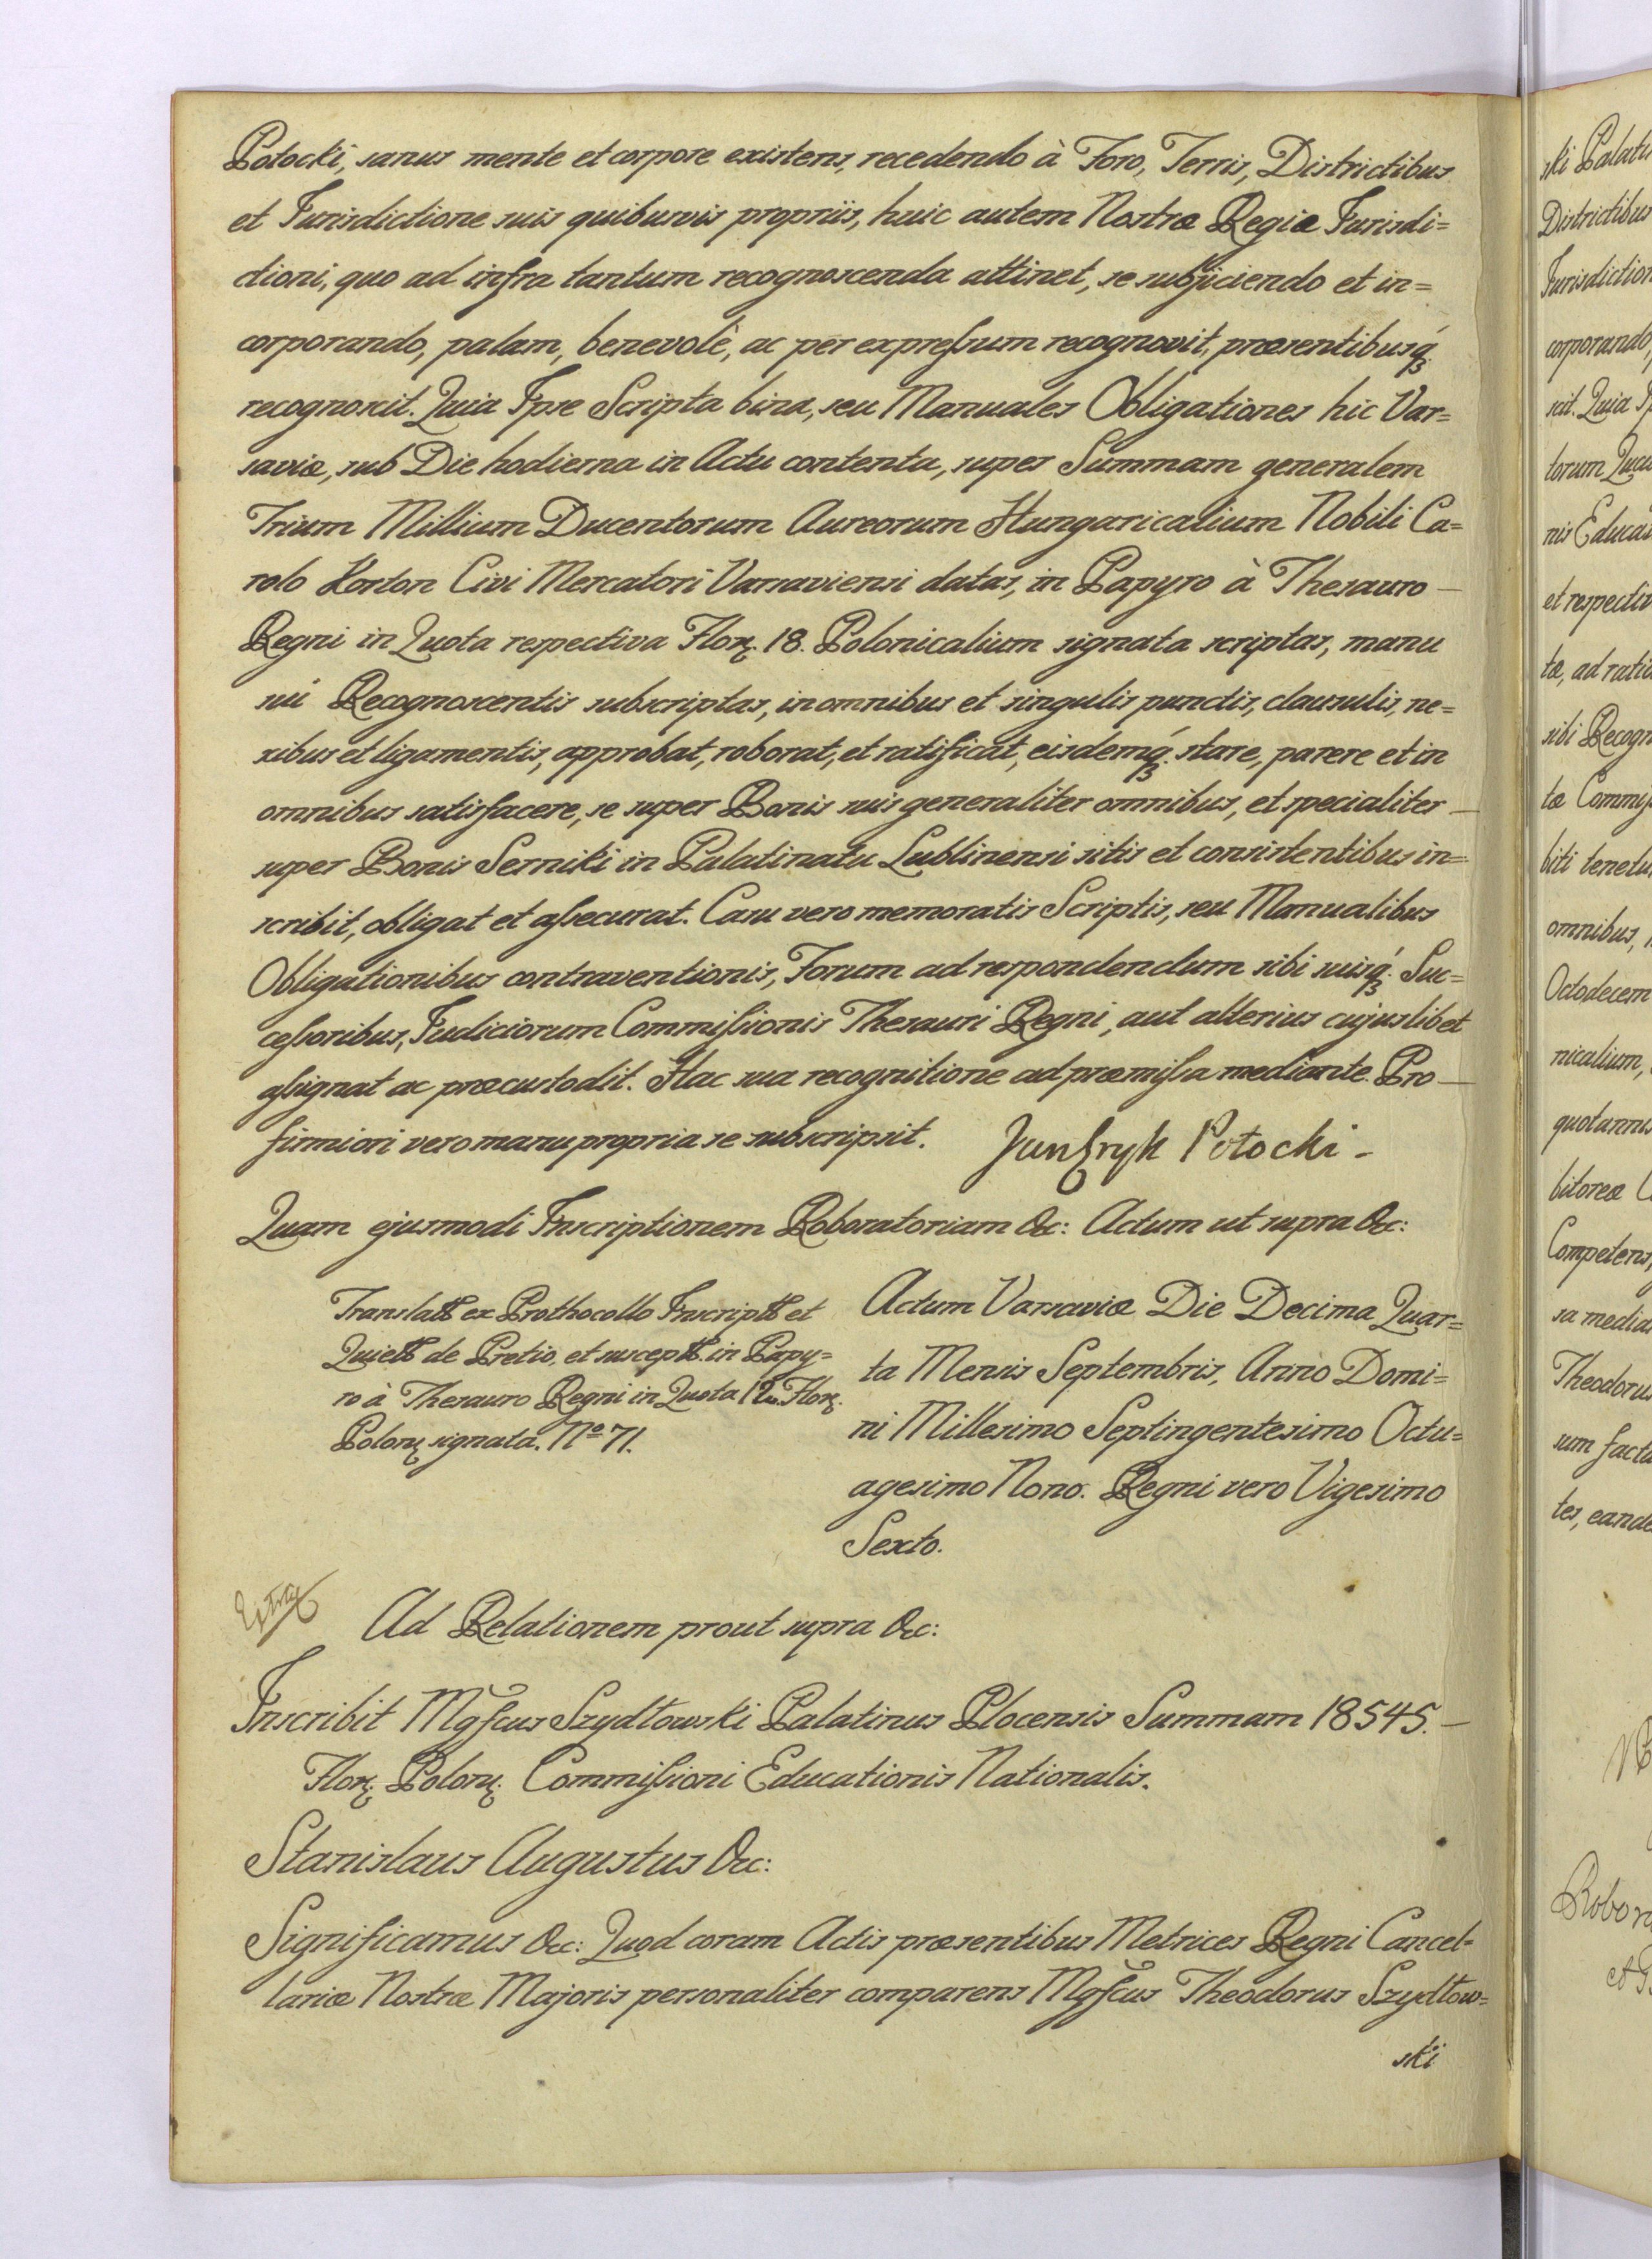 Potocki, sanus mente et corpore existens, recedendo à Foro, Terris, Districtibus
et Jurisdictione suis quibusvis propriis, huic autem Nostræ Regiæ Jurisdi=
ctioni, quo ad infra tantum recognoscenda attinet, se subjiciendo et in=
corporando, palam, benevolè, ac per expreſsum recognovit, præsentibusq́ꝫ
recognoscit. Quia Ipse Scripta bina, seu Manuales Obligationes hic Var=
saviæ, sub Die hodierna in Actu contenta, super Summam generalem
Trium Millium Ducentorum Aureorum Hungaricalium Nobili Ca=
rolo Korton Civi Mercatori Varsaviensi datas, in Papyro à Thesauro —
Regni in Quota respectiva Florꝫ. 18. Polonicalium signata scriptas, manu
sui Recognoscentis subscriptas, in omnibus et singulis punctis, clausulis, ne=
xibus et ligamentis, approbat, roborat, et ratificat, eisdemq́ꝫ. stare, parere et in
omnibus satisfacere, se super Bonis suis generaliter omnibus, et specialiter —
super Bonis Serniki in Palatinatu Lublinensi sitis et consistentibus in=
scribit, obligat et aſsecurat. Casu vero memoratis Scriptis, seu Manualibus
Obligationibus contraventionis, Forum ad respondendum sibi suisq́ꝫ. Suc=
ceſsoribus, Judiciorum Commiſsionis Thesauri Regni, aut alterius cujuslibet
aſsignat ac præcustodit. Hac sua recognitione ad præmiſsa mediante. Pro —
firmiori vero manu propria se subscripsit. Jan Eryk Potocki -
Quam ejusmodi Inscriptionem Roboratoriam &c: Actum ut supra &c:
Translatt ex Prothocollo Inscriptt et
Quiett de Pretio, et susceptt. in Papy=
ro à Thesauro Regni in Quota 12. Florꝫ.
Polonꝫ signata. No 71.
Actum Varsaviæ Die Decima Quar=
ta Mensis Septembris, Anno Domi=
ni Millesimo Septingentesimo Octu=
agesimo Nono. Regni vero Vigesimo
Sexto.
Extra
Ad Relationem prout supra &c:
Inscribit Mgfcus Szydłowski Palatinus Plocensis Summam 18545. —
Florꝫ. Polonꝫ. Commiſsioni Educationis Nationalis.
Stanislaus Augustus &c:
Significamus &c: Quod coram Actis præsentibus Metrices Regni Cancel=
lariæ Nostræ Majoris personaliter comparens Mgfcus Theodorus Szydłow=
ski
ski Palati
Districtibus
Jurisdiction
corporando,
scit. Quia
torum
nis Educa
et respectiv
tæ, ad ratio
sibi Recogn
tæ Commiſ
biti tenetu
omnibus,
Octodecem
nicalium,
quotannis
bitoreæ
Competens,
sa media
Theodorus
sum factu
tes, eande
Robor